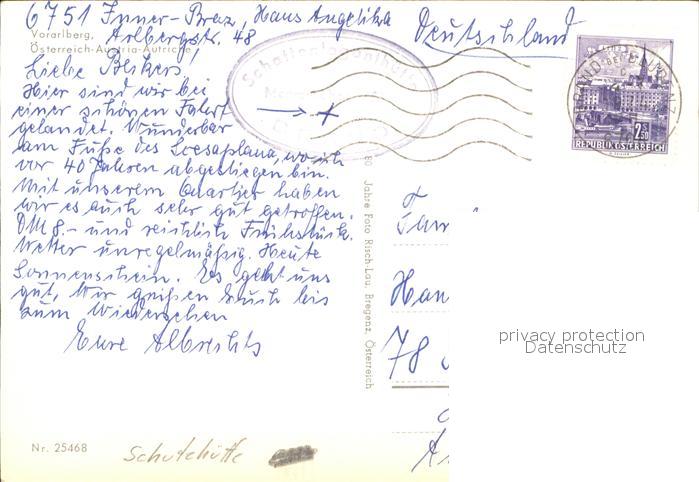 6751 Inner-Braz, Haus Angelika
Arlbergstr. 48
Deutschland
Vorarlberg,
Österreich-Austria-Autriche
Liebe
Hier sind wir bei
einer schönen Fahrt
gelandet. Wunderbar
am Fuße des Scesaplana, wo ich
vor 40 Jahren abgestiegen bin.
Mit unserem Quartier haben
wir es auch sehr gut getroffen.
DM 8.- und reichlich Frühstück.
Wetter unregelmäßig. Heute
Sonnenschein. Es geht uns
gut, Wir grüßen Euch bis
zum Wiedersehen
Eure Albrechts
Nr. 25468
Schutzhütte
80 Jahre Foto Risch-Lau, Bregenz, Österreich
2.50
REPUBLIK ÖSTERREICH
Fam
Han
78
privacy protection
Datenschutz